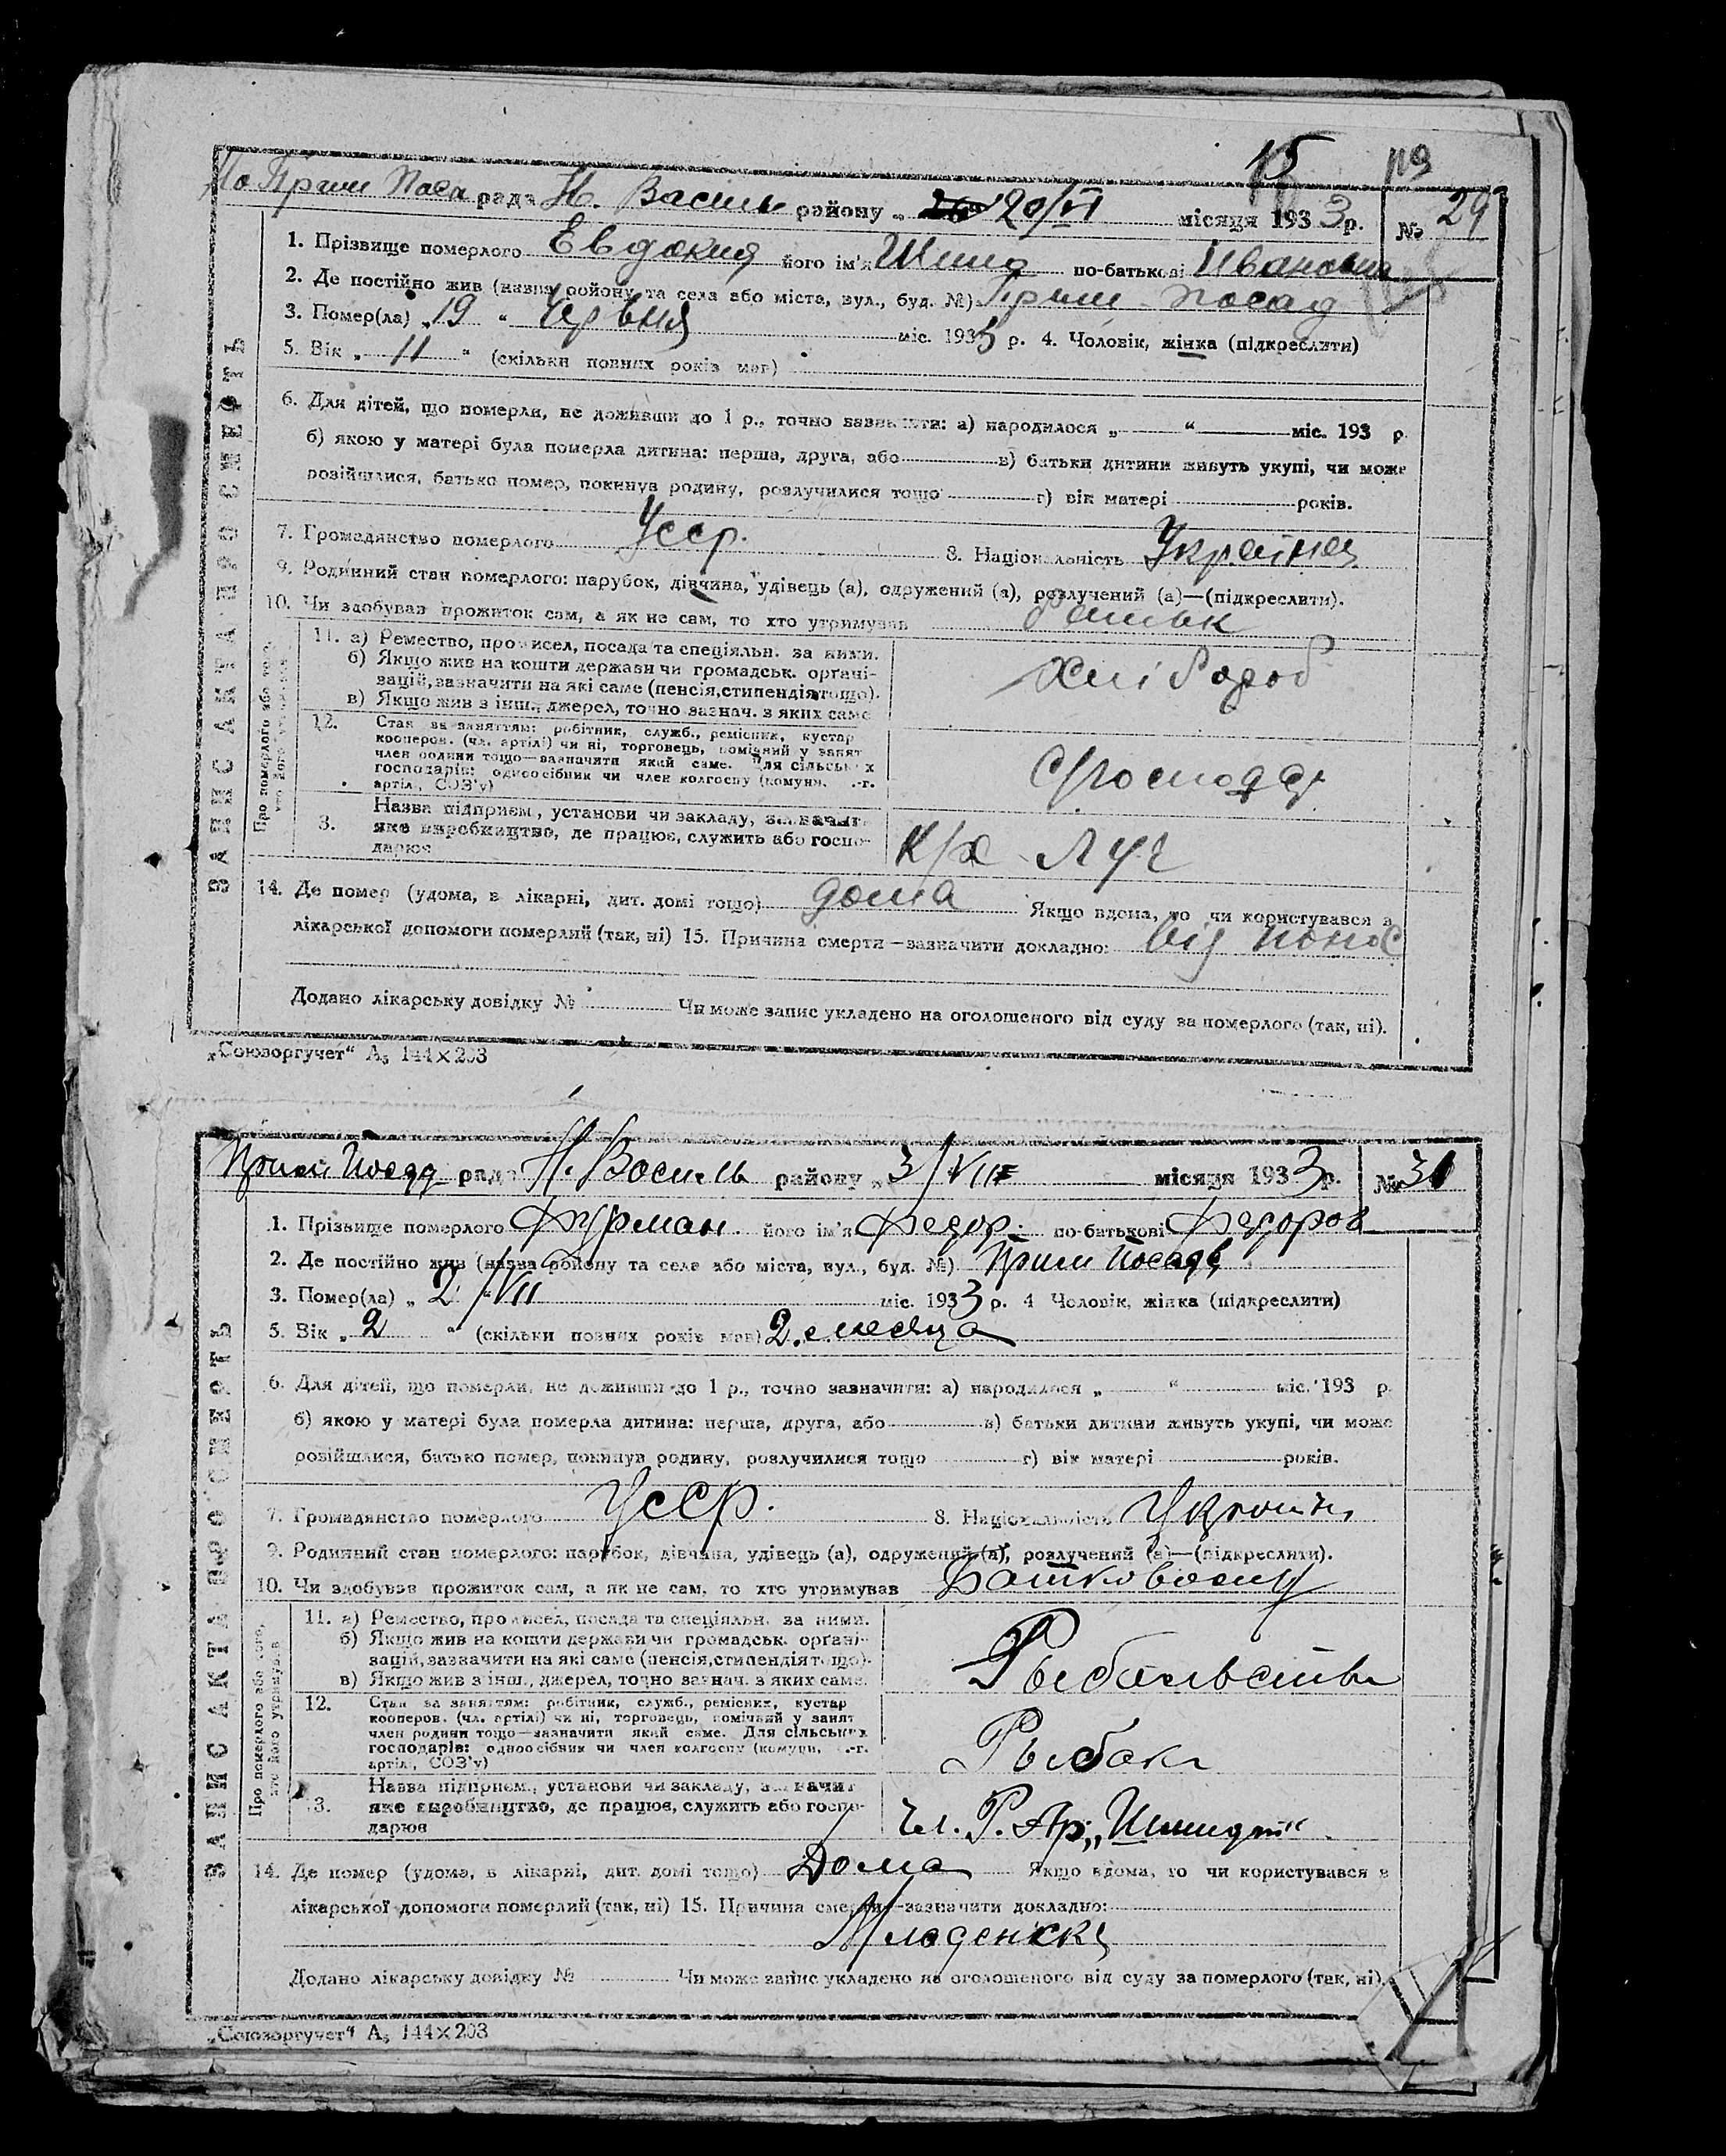 15 119
Прим Поса рада Н. Василь району „ 20/VI місяця 1933 р. № 29
1. Прізвище померлого Евдокия його ім'я Шило по-батькові Ивановна
2. Де постійно жив (назва району та села або міста, вул., буд. №) Прим Посад
3. Помер(ла) „19“ Червня міс. 1933 р. 4. Чоловік, жінка (підкреслити)
5. Вік „ 11 “ (скільки повних років мав)
6. Для дітей, що померли, не доживши до 1 р., точно зазначити: а) народилося „ “ міс. 193 р.
б) якою у матері була померла дитина: перша, друга, або в) батьки дитини живуть укупі, чи може
розійшлися, батько помер, покинув родину, розлучилися тощо г) вік матері років.
7. Громадянство померлого Усср. 8. Національність Украінка
9. Родинний стан померлого: парубок, дівчина, удівець (а), одружений (а), розлучений (а)—(підкреслити).
10. Чи здобував прожиток сам, а як не сам, то хто утримував батьк
ЗАПИС АКТА ПРО СМЕРТЬ
Про померлого або того, хто його утримував
11. а) Ремество, промисел, посада та спеціяльн. за ними.
б) Якщо жив на кошти держави чи громадськ. органі-
зацій, зазначити на які саме (пенсія, стипендія тощо).
в) Якщо жив з інш., джерел, точно зазнач. з яких саме
Хлібороб
12. Стан за заняттям: робітник, служб., ремісник, кустар
кооперов. (чл. артілі) чи ні, торговець, помічний у занят
член родини тощо—зазначити який саме. Для сільських
господарів: одноосібник чи член колгоспу (комуни, с.-г.
артілі, СОЗ'у)
3. Назва підприєм., установи чи закладу, зазначит
яке виробництво, де працює, служить або госпо-
дарює
К/х Луч
14. Де помер (удома, в лікарні, дит. домі тощо) дома Якщо вдома, то чи користувався з
лікарської допомоги померлий (так, ні) 15. Причина смерти—зазначити докладно: від понос
Додано лікарську довідку № Чи може запис укладено на оголошеного від суду за померлого (так, ні).
„Союзоргучет“ А₅ 144×203
Прим Посад рада Н. Василь району „ 3/VII місяця 1933 р. № 31
1. Прізвище померлого Фурман його ім'я Федор. по-батькові Федоров
2. Де постійно жив (назва району та села або міста, вул., буд. №) Прим Посад
3. Помер(ла) „ 2/VII міс. 1933 р. 4 Чоловік, жінка (підкреслити)
5. Вік „ 2 “ (скільки повних років мав) 2. месяца
6. Для дітей, що померли, не доживши до 1 р., точно зазначити: а) народилося „ “ міс. 193 р.
б) якою у матері була померла дитина: перша, друга, або в) батьки дитини живуть укупі, чи може
розійшлися, батько помер, покинув родину, розлучилися тощо г) вік матері років.
7. Громадянство померлого УССР. 8. Національність
9. Родинний стан померлого: парубок, дівчина, удівець (а), одружений (а), розлучений (а)—(підкреслити).
10. Чи здобував прожиток сам, а як не сам, то хто утримував
ЗАПИС АКТА ПРО СМЕРТЬ
Про померлого або того, хто його утримував
11. а) Ремество, промисел, посада та спеціяльн. за ними.
б) Якщо жив на кошти держави чи громадськ. органі-
зацій, зазначити на які саме (пенсія, стипендія тощо).
в) Якщо жив з інш., джерел, точно зазнач. з яких саме.
12. Стан за заняттям: робітник, служб., ремісник, кустар
кооперов. (чл. артілі) чи ні, торговець, помічний у занят
член родини тощо—зазначити який саме. Для сільських
господарів: одноосібник чи член колгоспу (комуни, с.-г.
артілі, СОЗ'у)
Рыбак
3. Назва підприєм., установи чи закладу, зазначит
яке виробництво, де працює, служить або госпо-
дарює
Чл. Р. Ар. „Шмидт“
14. Де помер (удома, в лікарні, дит. домі тощо) Дома Якщо вдома, то чи користувався з
лікарської допомоги померлий (так, ні) 15. Причина смерти—зазначити докладно:
Младенска
Додано лікарську довідку № Чи може запис укладено на оголошеного від суду за померлого (так, ні).
„Союзоргучет“ А₅ 144×203